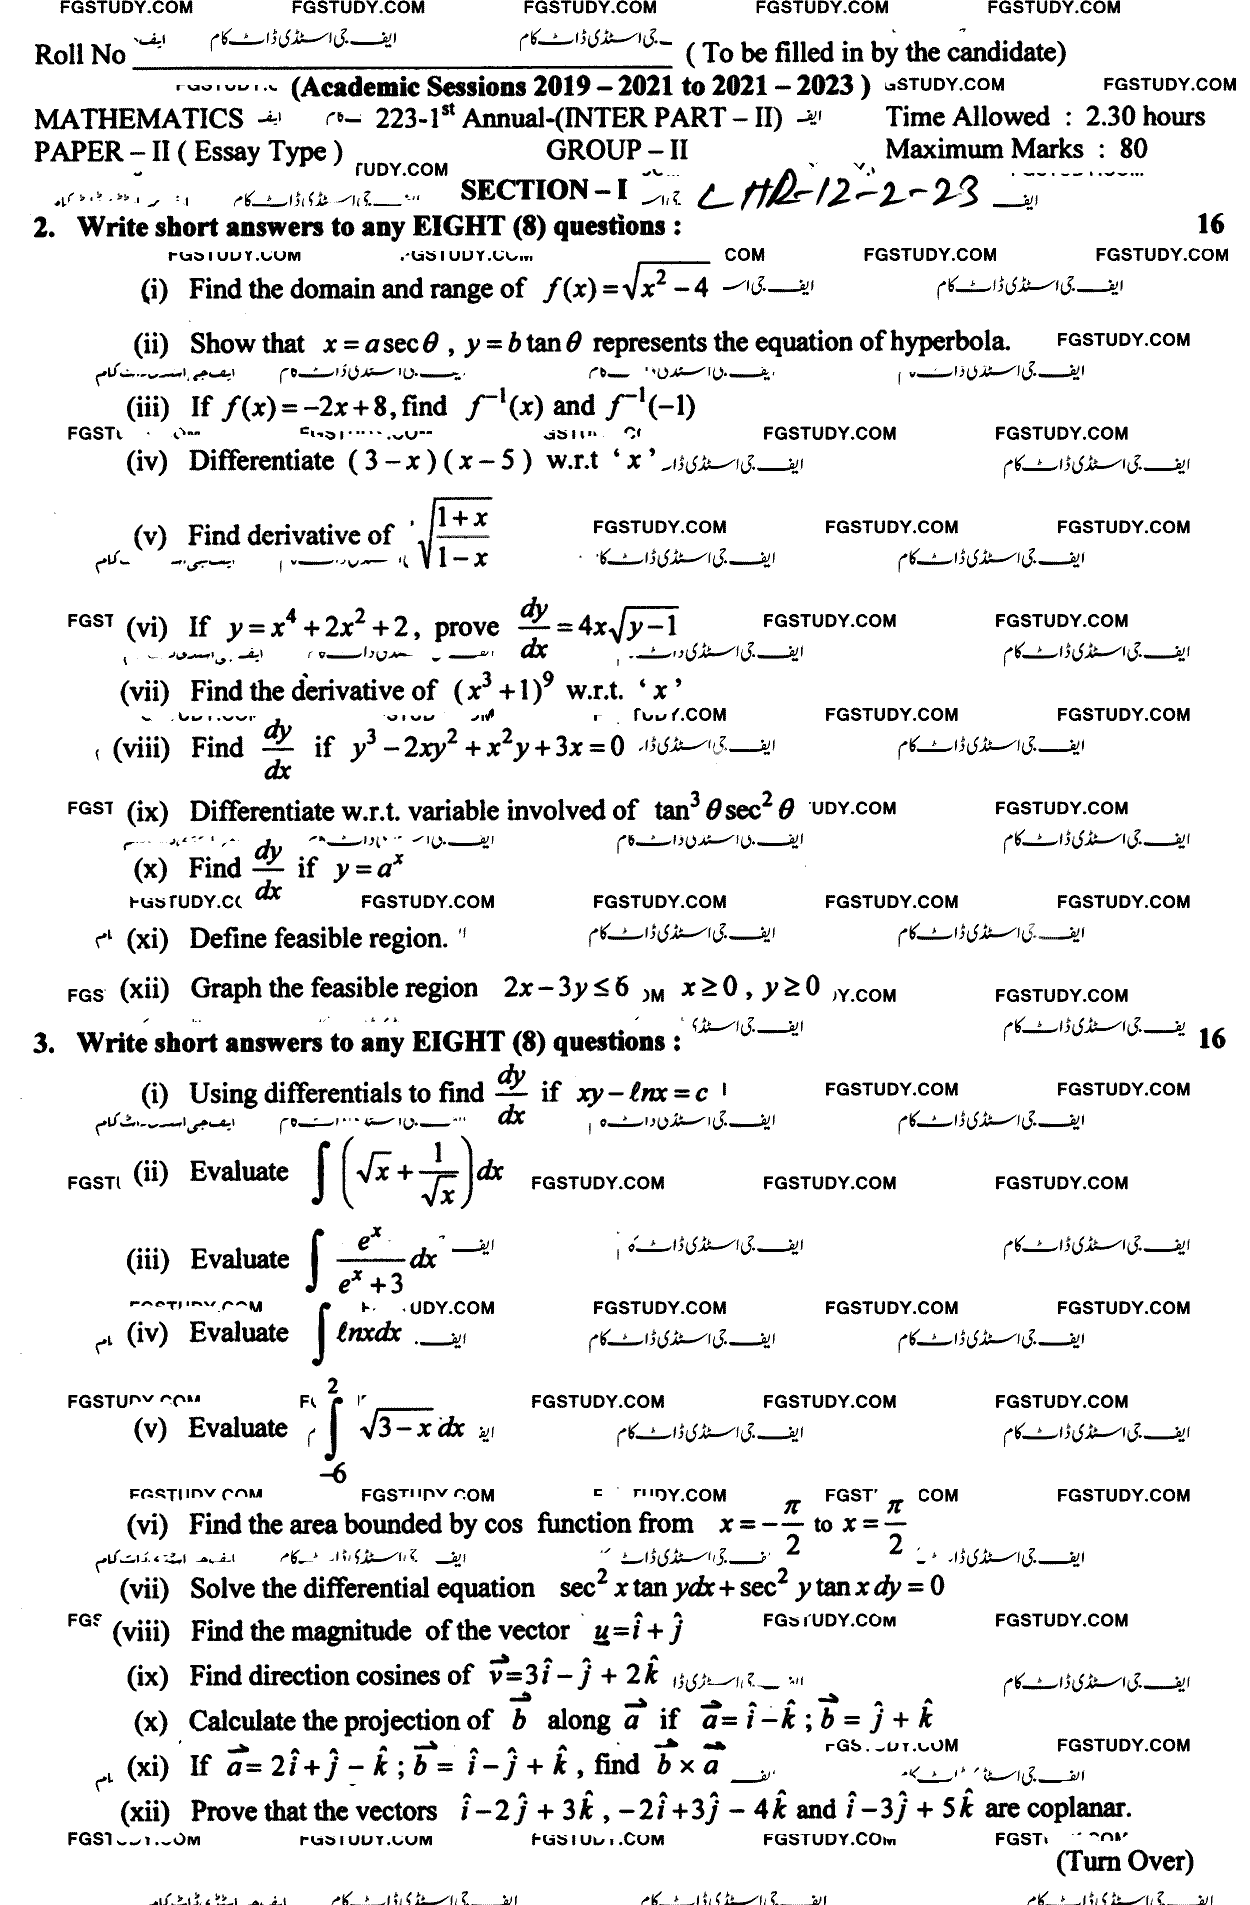 FGSTUDY.COM FGSTUDY.COM FGSTUDY.COM FGSTUDY.COM FGSTUDY.COM
Roll No ____________ ( To be filled in by the candidate)
(Academic Sessions 2019 – 2021 to 2021 – 2023 )
MATHEMATICS 223-1st Annual-(INTER PART – II) Time Allowed : 2.30 hours
PAPER – II ( Essay Type ) GROUP – II Maximum Marks : 80
SECTION – I LHR-12-2-23
2. Write short answers to any EIGHT (8) questions : 16
(i) Find the domain and range of f(x) = √(x² – 4)
(ii) Show that x = a sec θ , y = b tan θ represents the equation of hyperbola.
(iii) If f(x) = –2x + 8, find f⁻¹(x) and f⁻¹(–1)
(iv) Differentiate ( 3 – x ) ( x – 5 ) w.r.t ‘ x ’
(v) Find derivative of √((1 + x)/(1 – x))
(vi) If y = x⁴ + 2x² + 2 , prove dy/dx = 4x√(y – 1)
(vii) Find the derivative of (x³ + 1)⁹ w.r.t. ‘ x ’
(viii) Find dy/dx if y³ – 2xy² + x²y + 3x = 0
(ix) Differentiate w.r.t. variable involved of tan³ θ sec² θ
(x) Find dy/dx if y = aˣ
(xi) Define feasible region.
(xii) Graph the feasible region 2x – 3y ≤ 6 x ≥ 0 , y ≥ 0
3. Write short answers to any EIGHT (8) questions : 16
(i) Using differentials to find dy/dx if xy – ℓnx = c
(ii) Evaluate ∫ (√x + 1/√x) dx
(iii) Evaluate ∫ eˣ/(eˣ + 3) dx
(iv) Evaluate ∫ ℓnxdx
(v) Evaluate ∫₋₆² √(3 – x) dx
(vi) Find the area bounded by cos function from x = –π/2 to x = π/2
(vii) Solve the differential equation sec² x tan ydx + sec² y tan x dy = 0
(viii) Find the magnitude of the vector u̲ = î + ĵ
(ix) Find direction cosines of v⃗ = 3î – ĵ + 2k̂
(x) Calculate the projection of b⃗ along a⃗ if a⃗ = î – k̂ ; b⃗ = ĵ + k̂
(xi) If a⃗ = 2î + ĵ – k̂ ; b⃗ = î – ĵ + k̂ , find b⃗ × a⃗
(xii) Prove that the vectors î – 2ĵ + 3k̂ , –2î + 3ĵ – 4k̂ and î – 3ĵ + 5k̂ are coplanar.
(Turn Over)